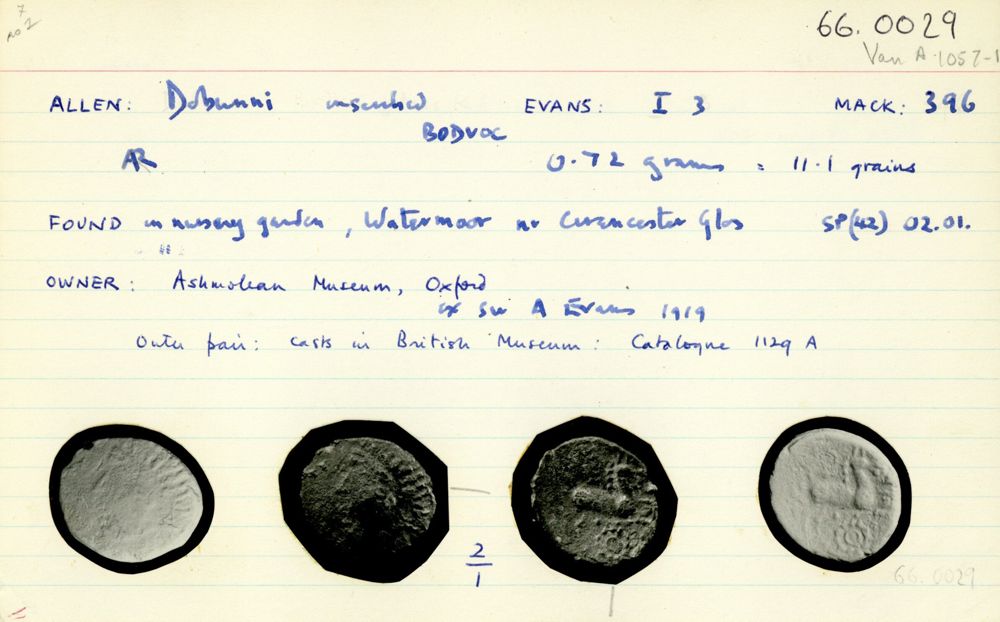 7
no 2
66.0029
Van A.1057-1
ALLEN: Dobunni inscribed EVANS: I 3 MACK: 396
BODVOC
AR 0.72 grams = 11.1 grains
FOUND in nursery garden, Watermoor nr Cirencester Glos SP(42) 02.01.
OWNER: Ashmolean Museum, Oxford
ex Sir A Evans 1919
Outer pair: casts in British Museum: Catalogue 1129 A
2
1
66.0029